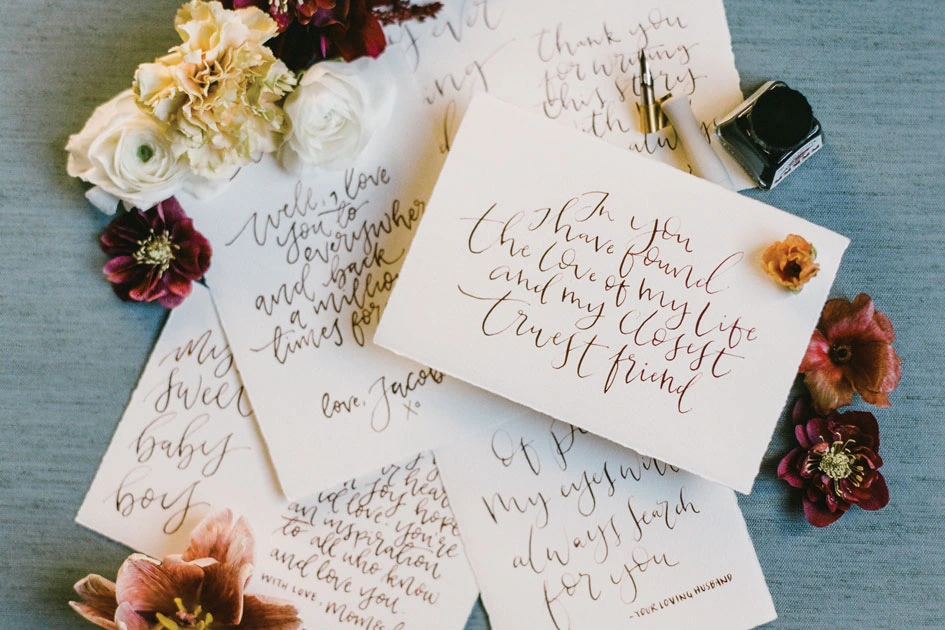 ever
Thank you
for writing
this story
with
In you
I have found
the love of my life
and my closest
truest friend
Well, I love
you to
everywhere
and back
a million
times for
love, Jacob
xo
My
sweet
baby
boy
joy
hope
and love. you're
an inspiration
to all who know
and love you.
WITH LOVE,
Of
My eyes will
always search
for you
-YOUR LOVING HUSBAND